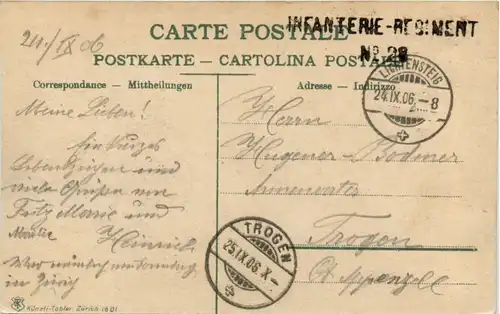 24./IX 06
INFANTERIE-REGIMENT
No 28
CARTE POSTALE
POSTKARTE - CARTOLINA POSTALE
Correspondance - Mittheilungen
Adresse - Indirizzo
LICHTENSTEIG
24.IX.06.-8
Meine Lieben!
Ein kurzes
Lebenszeichen und
viele Grüsse von
Fritz Marie und
Heinrich
in Zürich
Herrn
Hugener-Bodmer
Armenvater
Trogen
Ct Appenzell
TROGEN
25.IX.06.X-
Künzli-Tobler, Zürich 1801